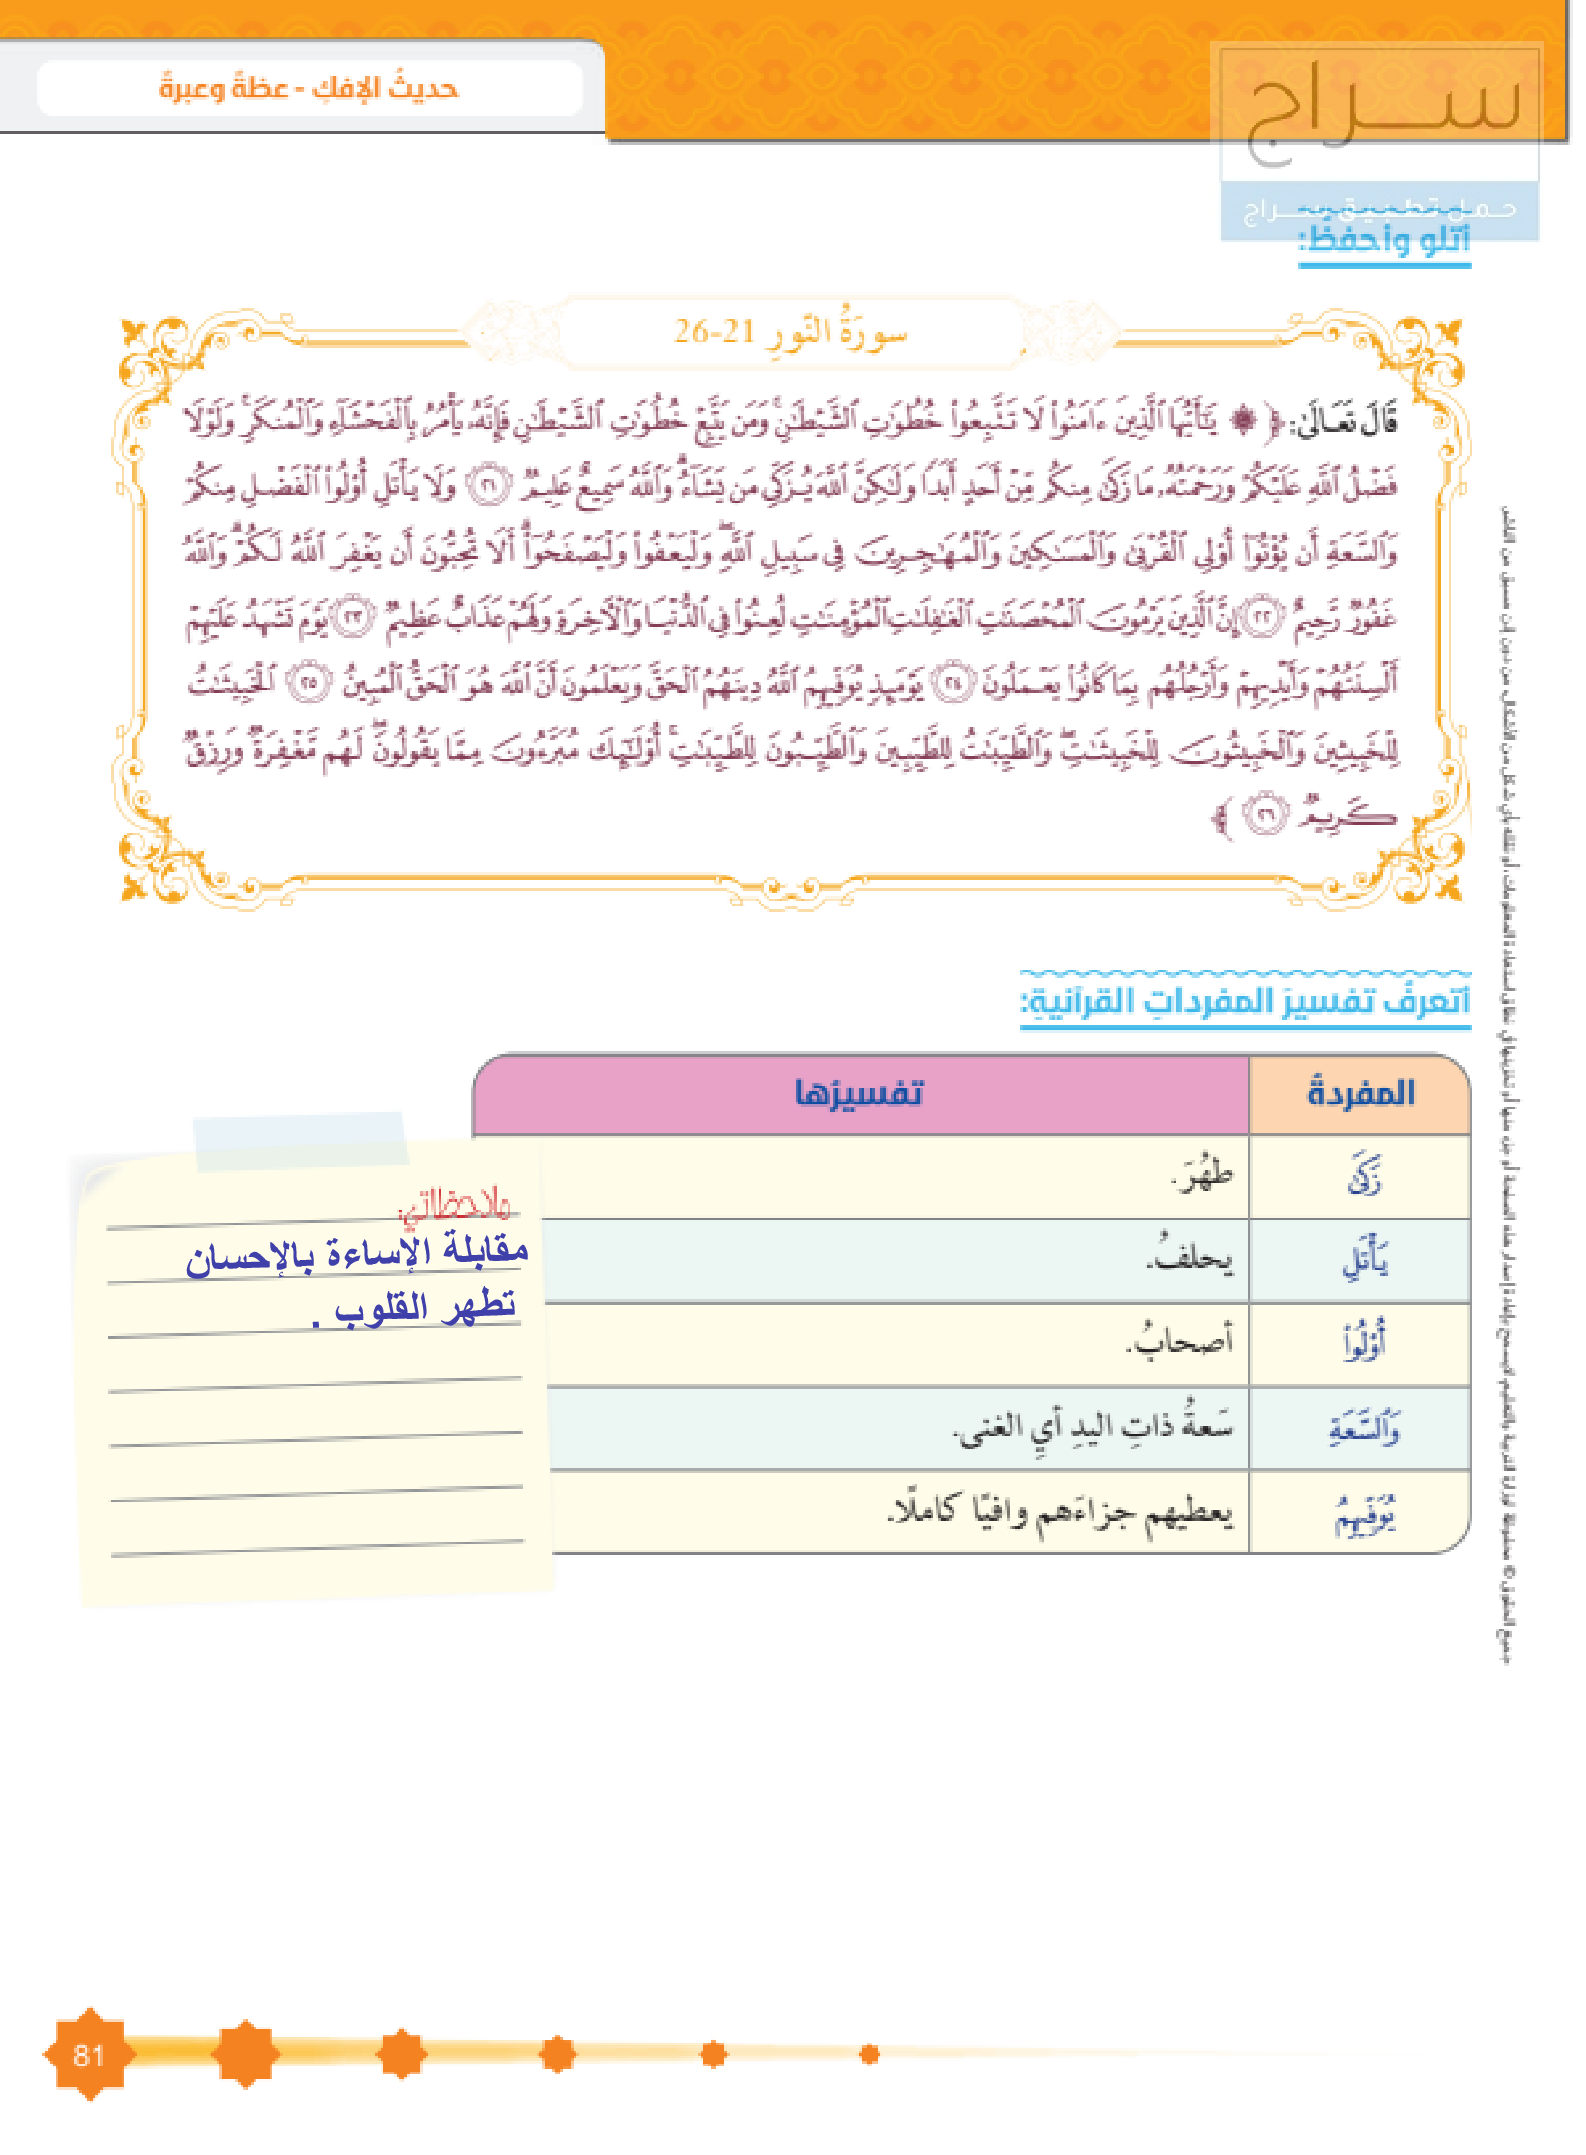 حديثُ الإفكِ - عظةً وعبرةً
سراج
حمل تطبيق سراج
أتلو وأحفظُ:
سورَةُ النّورِ 21-26
قَالَ تَعَالَىٰ: ﴿ ۞ يَٰٓأَيُّهَا ٱلَّذِينَ ءَامَنُوا۟ لَا تَتَّبِعُوا۟ خُطُوَٰتِ ٱلشَّيْطَٰنِ ۚ وَمَن يَتَّبِعْ خُطُوَٰتِ ٱلشَّيْطَٰنِ فَإِنَّهُۥ يَأْمُرُ بِٱلْفَحْشَآءِ وَٱلْمُنكَرِ ۚ وَلَوْلَا
فَضْلُ ٱللَّهِ عَلَيْكُمْ وَرَحْمَتُهُۥ مَا زَكَىٰ مِنكُم مِّنْ أَحَدٍ أَبَدًا وَلَٰكِنَّ ٱللَّهَ يُزَكِّى مَن يَشَآءُ ۗ وَٱللَّهُ سَمِيعٌ عَلِيمٌ ﴿٢١﴾ وَلَا يَأْتَلِ أُو۟لُوا۟ ٱلْفَضْلِ مِنكُمْ
وَٱلسَّعَةِ أَن يُؤْتُوٓا۟ أُو۟لِى ٱلْقُرْبَىٰ وَٱلْمَسَٰكِينَ وَٱلْمُهَٰجِرِينَ فِى سَبِيلِ ٱللَّهِ ۖ وَلْيَعْفُوا۟ وَلْيَصْفَحُوٓا۟ ۗ أَلَا تُحِبُّونَ أَن يَغْفِرَ ٱللَّهُ لَكُمْ ۗ وَٱللَّهُ
غَفُورٌ رَّحِيمٌ ﴿٢٢﴾ إِنَّ ٱلَّذِينَ يَرْمُونَ ٱلْمُحْصَنَٰتِ ٱلْغَٰفِلَٰتِ ٱلْمُؤْمِنَٰتِ لُعِنُوا۟ فِى ٱلدُّنْيَا وَٱلْءَاخِرَةِ وَلَهُمْ عَذَابٌ عَظِيمٌ ﴿٢٣﴾ يَوْمَ تَشْهَدُ عَلَيْهِمْ
أَلْسِنَتُهُمْ وَأَيْدِيهِمْ وَأَرْجُلُهُم بِمَا كَانُوا۟ يَعْمَلُونَ ﴿٢٤﴾ يَوْمَئِذٍ يُوَفِّيهِمُ ٱللَّهُ دِينَهُمُ ٱلْحَقَّ وَيَعْلَمُونَ أَنَّ ٱللَّهَ هُوَ ٱلْحَقُّ ٱلْمُبِينُ ﴿٢٥﴾ ٱلْخَبِيثَٰتُ
لِلْخَبِيثِينَ وَٱلْخَبِيثُونَ لِلْخَبِيثَٰتِ ۖ وَٱلطَّيِّبَٰتُ لِلطَّيِّبِينَ وَٱلطَّيِّبُونَ لِلطَّيِّبَٰتِ ۚ أُو۟لَٰٓئِكَ مُبَرَّءُونَ مِمَّا يَقُولُونَ ۖ لَهُم مَّغْفِرَةٌ وَرِزْقٌ
كَرِيمٌ ﴿٢٦﴾ ﴾
أتعرفُ تفسيرَ المفرداتِ القرآنيةِ:
المفردةُ تفسيرُها
زَكَىٰ طهُرَ.
يَأْتَلِ يحلفُ.
أُو۟لُوا۟ أصحابُ.
وَٱلسَّعَةِ سَعةُ ذاتِ اليدِ أيِ الغنى.
يُوَفِّيهِمُ يعطيهم جزاءَهم وافيًا كاملًا.
ملاحظاتي:
مقابلة الإساءة بالإحسان
تطهر القلوب .
81